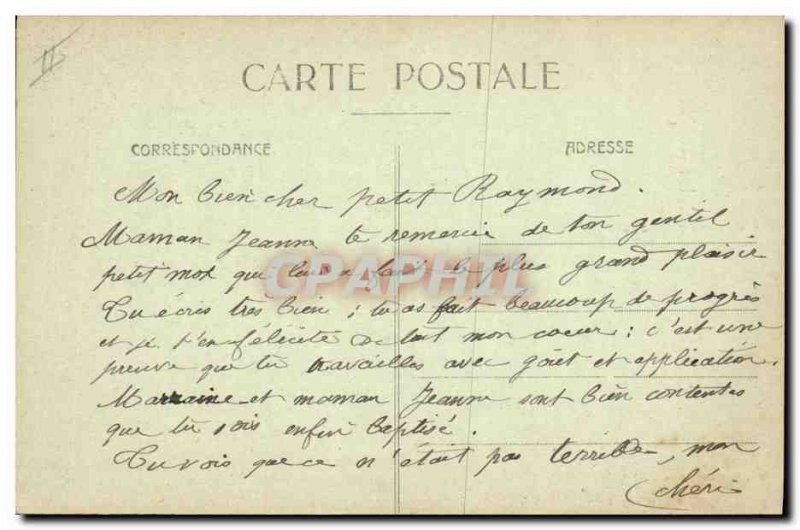 II
CARTE POSTALE
CORRESPONDANCE
ADRESSE
Mon bien cher petit Raymond.
Maman Jeanne te remercie de ton gentil
petit mot qui leur a fait le plus grand plaisir
CPAPHIL
Tu écris très bien ; tu as fait beaucoup de progrès
et je t'en félicite de tout mon coeur : c'est une
preuve que tu travailles avec goût et application.
Marraine et maman Jeanne sont bien contentes
que tu sois enfin baptisé.
Tu vois que ce n'était pas terrible, mon
chéri